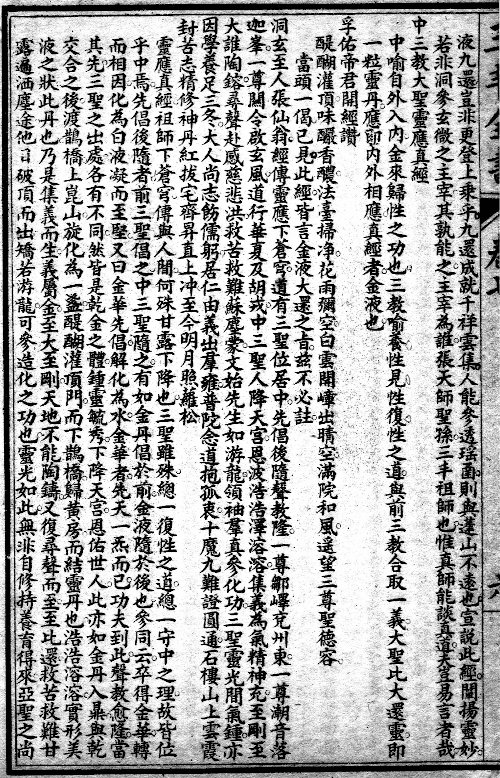 液九還豈非更登上乘乎九還成就千祥雲集人能參透瑤函則與蓬山不遠也宣說此經闡揚靈妙
若非洞參玄微之主宰其孰能之主宰為誰張天師聖孫三丰祖師也惟真師能談真道夫豈易言者哉
中三教大聖靈應真經
中喻自外入內金來歸性之功也三教喻養性見性復性之道與前三教合取一義大聖比大還靈即
一粒靈丹應即內外相應真經者金液也
孚佑帝君開經讚
醍醐灌頂味釅香醲法臺掃淨花雨彌空白雲開嶂出晴空滿院和風遥望三尊聖德容
當頭一偈已見此經皆言金液大還之旨茲不必註
洞玄至人張仙翁經傳靈應下蒼穹道有三聖位居中先倡後隨聲教隆一尊鄒嶧兗州東一尊潮音落
迦峯一尊關令啟玄風道行華夏及胡戎中三聖人降天宫恩波浩浩澤溶溶集義為氣精神充至剛至
大誰陶鎔尋聲赴感慈悲洪救苦救難蘇塵蒙文始先生如游龍領袖羣真參化功三聖靈光閒氣鍾亦
因學養足三冬大人尚志飭儒躬居仁由義出羣雍普院念道抱孤衷十魔九難證圓通石樓山上雲霞
封苦志精修神丹紅拔宅齊昇直上冲至今明月照蘿松
靈應真經祖師下蒼穹傳與人間何殊甘露下降也三聖雖殊總一復性之道總一守中之理故皆位
乎中焉先倡後隨者前三聖倡之中三聖隨之有如金丹倡於前金液隨於後也參同云卒得金華轉
而相因化為白液凝而至堅又曰金華先倡解化為水金華者先天一炁而已功夫到此聲教愈隆當
其先三聖之出處各有不同然皆是乾金之體鍾靈毓秀下降天宫恩佑世人此亦如金丹入鼎與乾
交合之後渡鵲橋上崑山旋化為一盞醍醐灌頂門而下鵲橋歸黃房而結靈丹也浩浩溶溶實形美
液之狀此丹也乃是集義而生義屬金至大至剛天地不能陶鑄又復尋聲而至至比還救苦救難甘
露遍洒塵途他日破頂而出矯若游龍可參造化之功也靈光如此無非自修持養育得來亞聖之尚